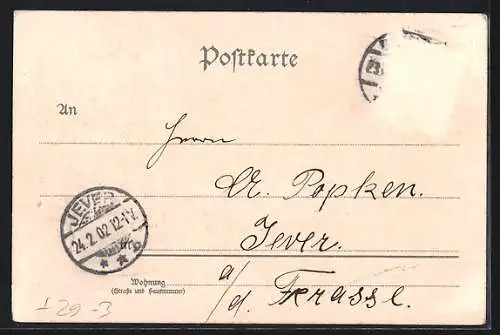 Postkarte
An
Herrn
Popken.
Jever.
JEVER
24.2.02 12-1N.
Wohnung
(Straße und Hausnummer)
a/
d. Terasse.
+29-3